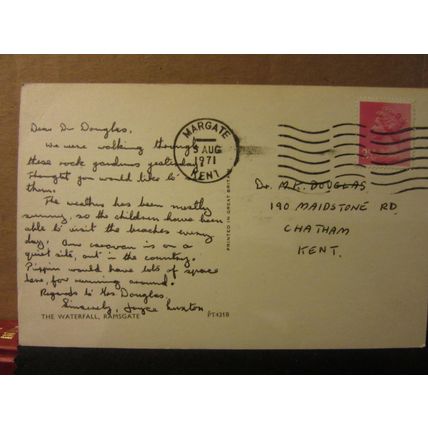 Dear Dr Douglas,
We were walking through
these rock gardens yesterday
Thought you would like to
them.
The weather has been mostly
sunny, so the children have been
able to visit the beaches every
day. Our caravan is on a
quiet site, out in the country.
Pippin would have lots of space
here, for running around.
Regards to Mrs Douglas,
Sincerely, Joyce
THE WATERFALL, RAMSGATE
PT4218
PRINTED IN GREAT BRITAIN
MARGATE
5 AUG
1971
KENT
Dr. R.F. DOUGLAS
190 MAIDSTONE RD
CHATHAM
KENT.